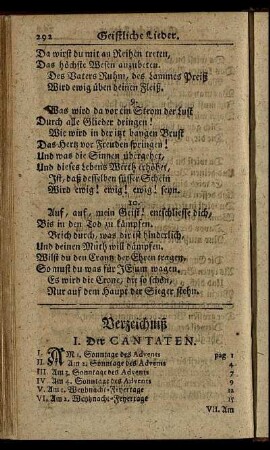 292 Geistliche Lieder.
Da wirst du mit an Reihen treten,
Das höchste Wesen anzubeten.
Des Vaters Ruhm, des Lammes Preiß
Wird ewig üben deinen Fleiß.
9.
Was wird da vor ein Strom der Lust
Durch alle Glieder dringen!
Wie wird in der itzt bangen Brust
Das Hertz vor Freuden springen!
Und was die Sinnen übergehet,
Und dieses Lebens Werth erhöhet,
Ist, daß desselben süsser Schein
Wird ewig! ewig! ewig! seyn.
10.
Auf, auf, mein Geist! entschliesse dich,
Bis in den Tod zu kämpfen.
Brich durch, was dir ist hinderlich,
Und deinen Muth will dämpfen.
Wilst du den Crantz der Ehren tragen,
So must du was für JEsum wagen.
Es wird die Crone, die so schön,
Nur auf dem Haupt der Sieger stehn.
Verzeichniß
I. Der CANTATEN.
I. AM 1. Sonntage des Advents pag 1
II. Am 2. Sonntage des Advents 4
III. Am 3. Sonntage des Advents 7
IV. Am 4. Sonntage des Advents 9
V. Am 1. Weyhnacht-Feyertage 12
VI. Am 2. Weyhnacht-Feyertage 15
VII. Am